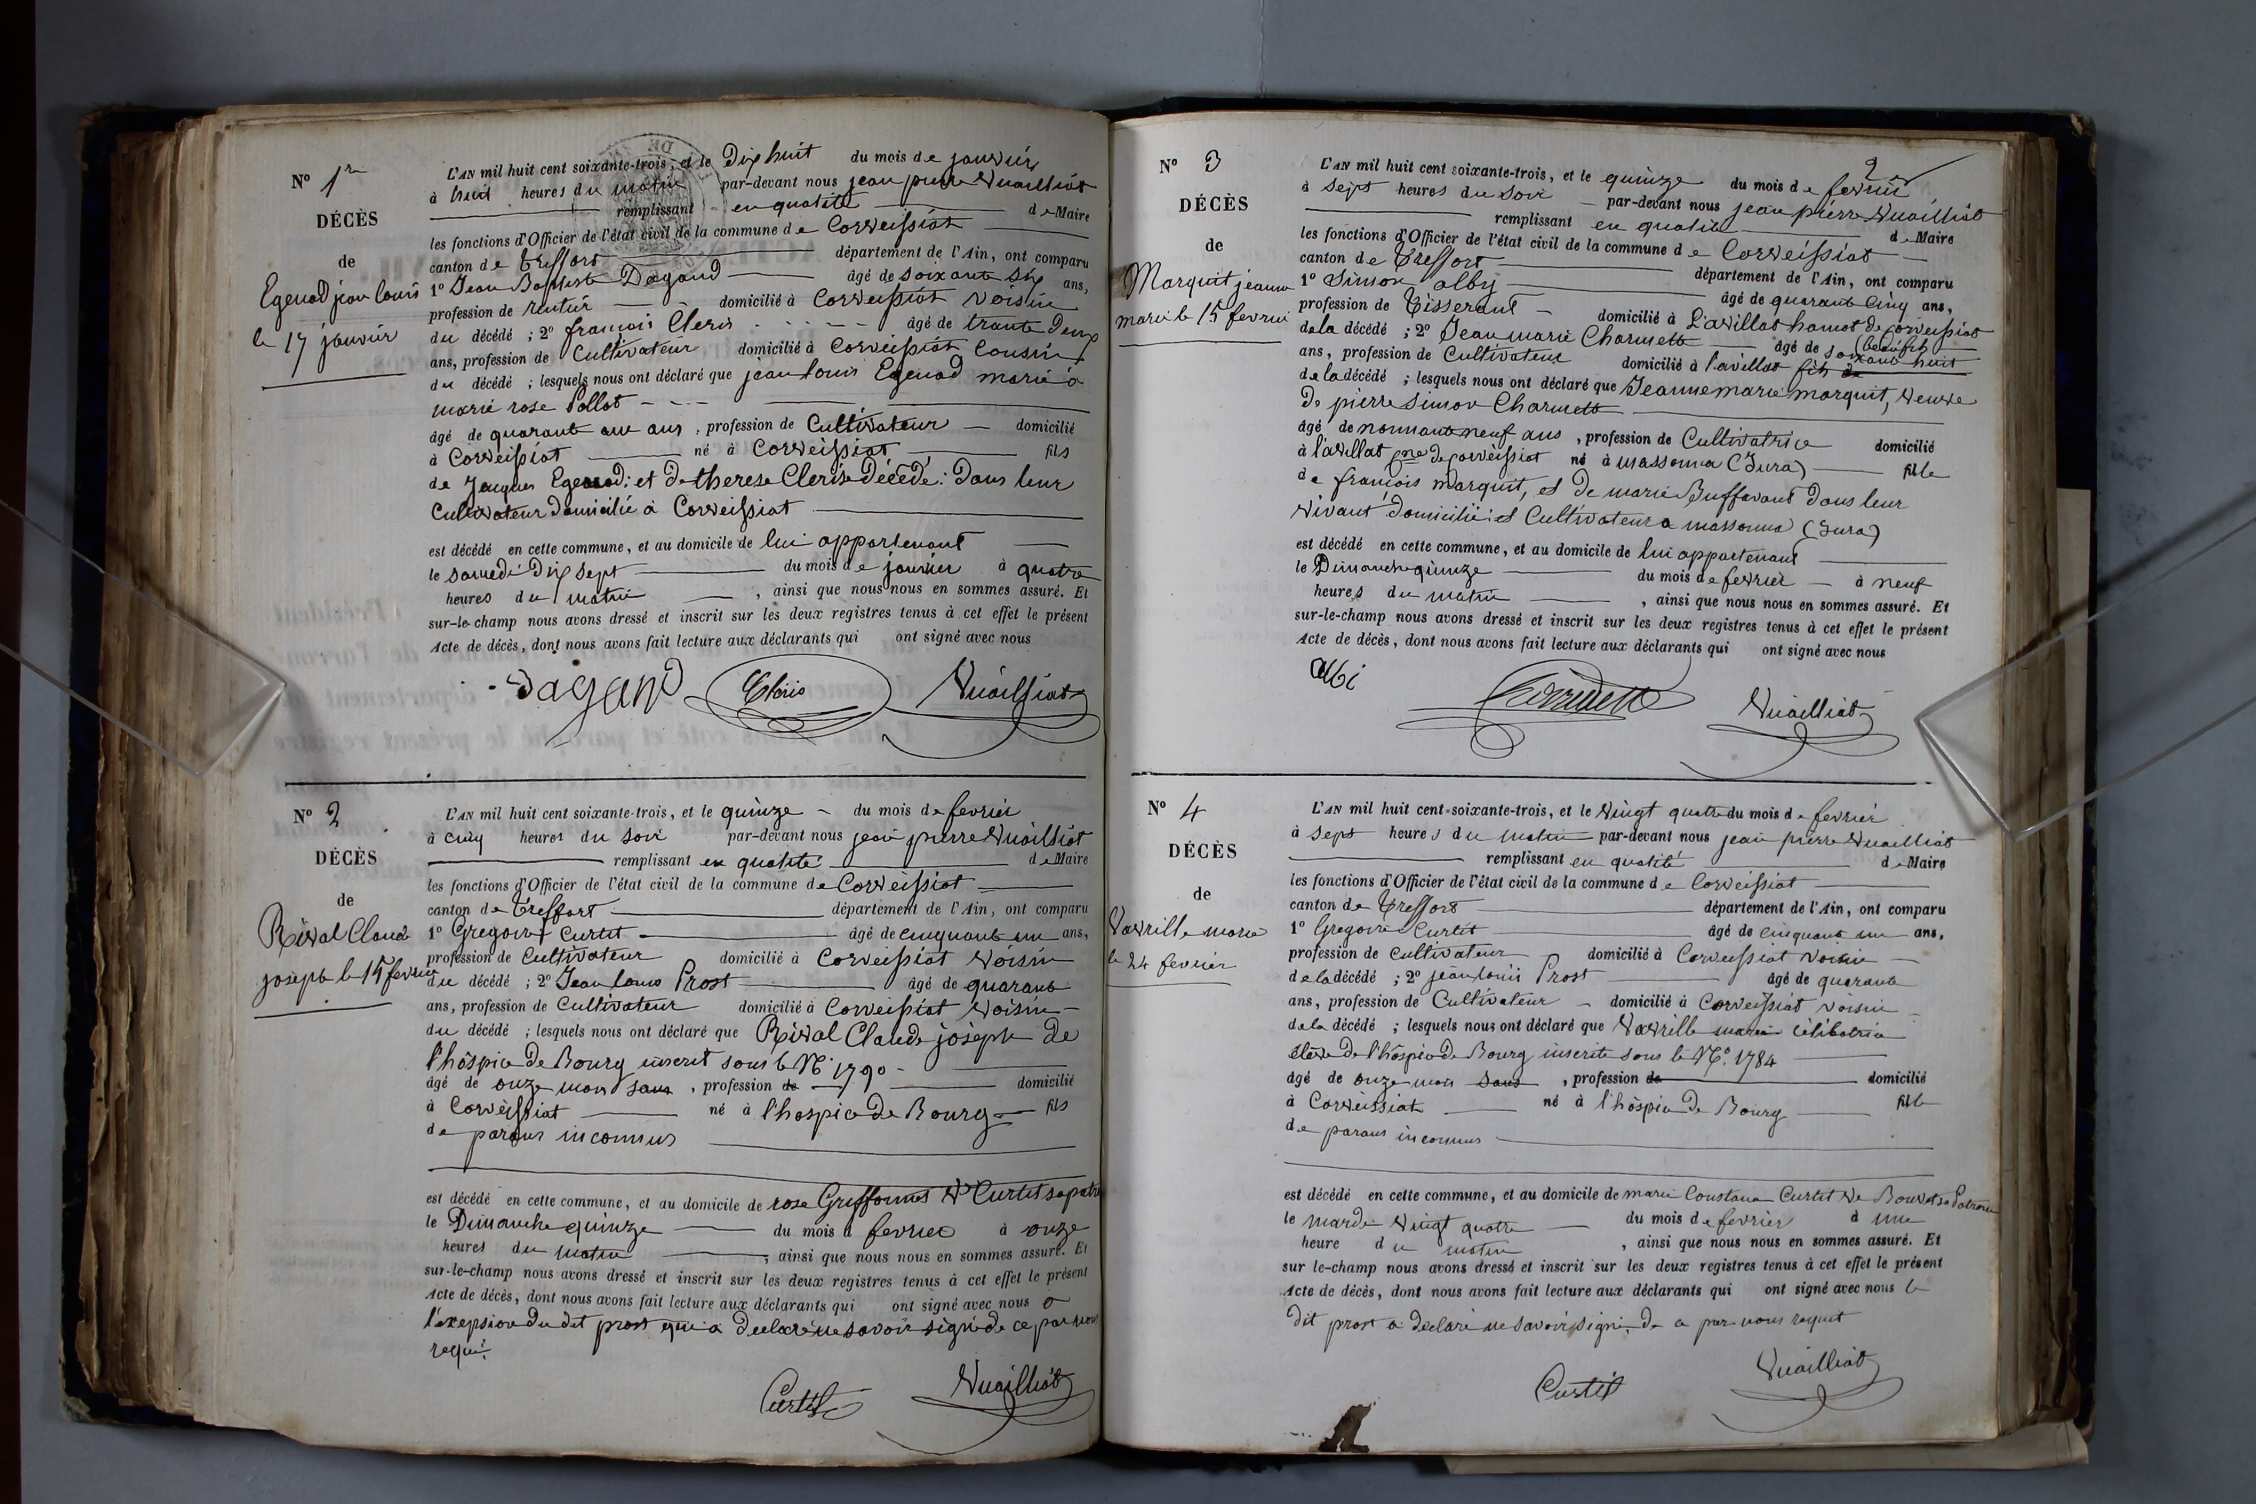 N° 1er
DÉCÈS
de
Egenod jean louis
le 17 janvier
L'AN mil huit cent soixante-trois, et le Dix huit du mois de janvier
à huit heures du matin par-devant nous jean pierre Vuailliat
remplissant en qualité de Maire
les fonctions d'Officier de l'état civil de la commune de Corveissiat
canton de treffort département de l'Ain, ont comparu
1° Jean Baptiste Dagand âgé de soixante six ans,
profession de rentier domicilié à Corveissiat voisin
du décédé ; 2° françois Cleris âgé de trante deux
ans, profession de Cultivateur domicilié à Corveissiat Cousin
du décédé ; lesquels nous ont déclaré que jean louis Egenod marié à
marie rose Pollet
âgé de quarante ans, profession de Cultivateur domicilié
à Corveissiat né à Corveissiat fils
de Jacques Egenod : et De therese Cleris Décédé : Dans leur
Cultivateur Domicilié à Corveissiat
est décédé en cette commune, et au domicile de lui appartenant
le samedi Dix sept du mois de janvier à quatre
heures du matin, ainsi que nous nous en sommes assuré. Et
sur-le-champ nous avons dressé et inscrit sur les deux registres tenus à cet effet le présent
Acte de décès, dont nous avons fait lecture aux déclarants qui ont signé avec nous
Dagand Cleris Vuailliat
N° 2
DÉCÈS
de
Rival Claude
joseph le 15 fevrier
L'AN mil huit cent soixante-trois, et le quinze du mois de fevrier
à cinq heures du soir par-devant nous jean pierre Vuailliat
remplissant en qualité de Maire
les fonctions d'Officier de l'état civil de la commune de Corveissiat
canton de Treffort département de l'Ain, ont comparu
1° Gregoire Curtet âgé de cinquante un ans,
profession de Cultivateur domicilié à Corveissiat voisin
du décédé ; 2° Jean louis Prost âgé de quarante
ans, profession de Cultivateur domicilié à Corveissiat voisin
du décédé ; lesquels nous ont déclaré que Rival Claude joseph de
l'hôspice De Bourg inscrit sous le N° 1790
âgé de onze mois sans, profession de domicilié
à Corveissiat né à l'hospice De Bourg fils
de parans inconnus
est décédé en cette commune, et au domicile de rose Griffonnet Ve Curtet sa patr
le Dimanche quinze du mois d fevrier à onze
heures du matin, ainsi que nous nous en sommes assuré. Et
sur-le-champ nous avons dressé et inscrit sur les deux registres tenus à cet effet le présent
Acte de décès, dont nous avons fait lecture aux déclarants qui ont signé avec nous a
l'exepsion Du dit prost qui a declaré ne savoir signé de ce par nous
requi.
Curtet Vuailliat
2
N° 3
DÉCÈS
de
Marquit jeanne
marie le 15 fevrier
L'AN mil huit cent soixante-trois, et le quinze du mois de fevrier
à sept heures du soir par-devant nous jean pierre Vuailliat
remplissant en qualité de Maire
les fonctions d'Officier de l'état civil de la commune de Corveissiat
canton de Treffort département de l'Ain, ont comparu
1° Simon alby âgé de quarante Cinq ans,
profession de Tisserant domicilié à L'avillat hamot de corveissiat
de la décédé ; 2° Jean marie Charnett âgé de soixante huit
(beaufils
ans, profession de Cultivateur domicilié à l'avillat fils de
de la décédé ; lesquels nous ont déclaré que Jeanne marie marquit, veuve
De pierre simon Charnett
âgé de nonnante neuf ans, profession de Cultivatrice domicilié
à l'avillat Cne De corveissiat né à massonna (Jura) fille
de françois marquit, et De marie Buffavant Dans leur
vivant Domicilié et Cultivateur a massonna (Jura)
est décédé en cette commune, et au domicile de lui appartenant
le Dimanche quinze du mois de fevrier à neuf
heures du matin, ainsi que nous nous en sommes assuré. Et
sur-le-champ nous avons dressé et inscrit sur les deux registres tenus à cet effet le présent
Acte de décès, dont nous avons fait lecture aux déclarants qui ont signé avec nous
albi Vuailliat
N° 4
DÉCÈS
de
Vavrille marie
le 24 fevrier
L'AN mil huit cent-soixante-trois, et le vingt quatre du mois de fevrier
à sept heures du matin par-devant nous jean pierre Vuailliat
remplissant en qualité de Maire
les fonctions d'Officier de l'état civil de la commune de Corveissiat
canton de Treffort département de l'Ain, ont comparu
1° Gregoire Curtet âgé de cinquante un ans,
profession de Cultivateur domicilié à Corveissiat voisin
de la décédé ; 2° jean louis Prost âgé de quarante
ans, profession de Cultivateur domicilié à Corveissiat voisin
de la décédé ; lesquels nous ont déclaré que Vavrille marie célibatrice
élève De l'hôspice De Bourg inscrite sous le N° 1784
âgé de onze mois sans, profession de domicilié
à Corveissiat né à l'hôspice De Bourg fille
de parans inconnus
est décédé en cette commune, et au domicile de marie Constance Curtet Ve Bouvet sa Patronne
le mardi vingt quatre du mois de fevrier à une
heure du matin, ainsi que nous nous en sommes assuré. Et
sur le-champ nous avons dressé et inscrit sur les deux registres tenus à cet effet le présent
Acte de décès, dont nous avons fait lecture aux déclarants qui ont signé avec nous le
Dit prost a declaré ne savoir signé, De a par nous requit
Curtet Vuailliat